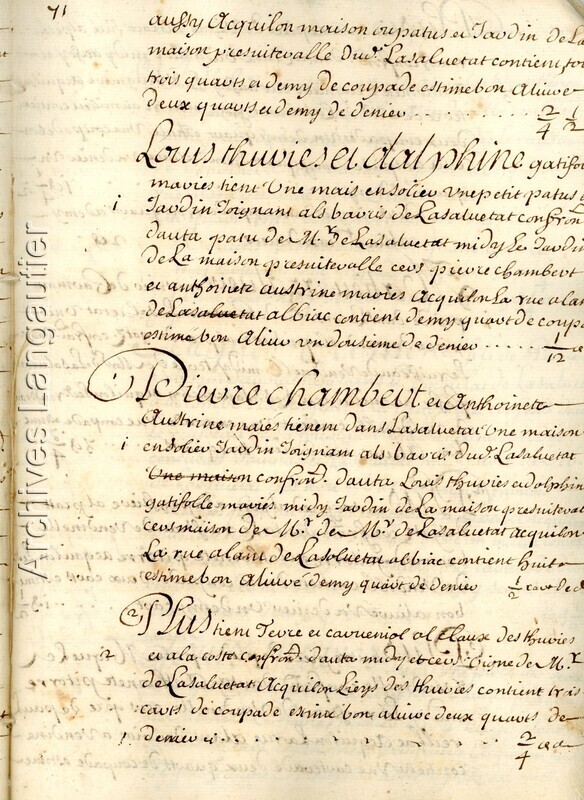 71
aussy Acquilon maison ou patus et Jardin de La
maison presuiteralle dud. Lasaluetat contient
trois quarts et demy de coupade estime bon aliuve
deux quarts et demy de denier 2/4 1/2
Louis thuvies et dalphine gatifolle
maries tient Une mais en solier Un petit patus
1 Jardin Joignant als barris de Lasaluetat confron
dauta patu de Mr. de Lasaluetat midy Le Jardin
de La maison presuiteralle cers pierre chambert
et anthoinete austrine maries Acquilon La rue a lan
de Lasaluetat albiac contient demy quart de coupe
estime bon aliuv Un dousieme de denier 1/12
1 Pierre chambert et Anthoinete
Austrine maies tienent dans Lasaluetat Une maison
1 en solier Jardin Joignant als barris dud. Lasaluetat
Une maison confrond. dauta Louis thuvies et dolphin
gatifolle maries midy Jardin de La maison presuiteral
cers maison de Mr. de Mr. de Lasaluetat acquilon
La rue a lant de Lasoluetat albiac contient huit
estime bon aliuve demy quart de denier 1/2
2 Plus tient Terre et carreniol al Claux des thuvies
2 et a la coste confrond. dauta midy et cers Vigne de Mr.
de Lasaluetat Acquilon Liers des thuvies contient trois
carts de coupade estime bon aliuve deux quarts de
denier 2/4
Archives Langautier